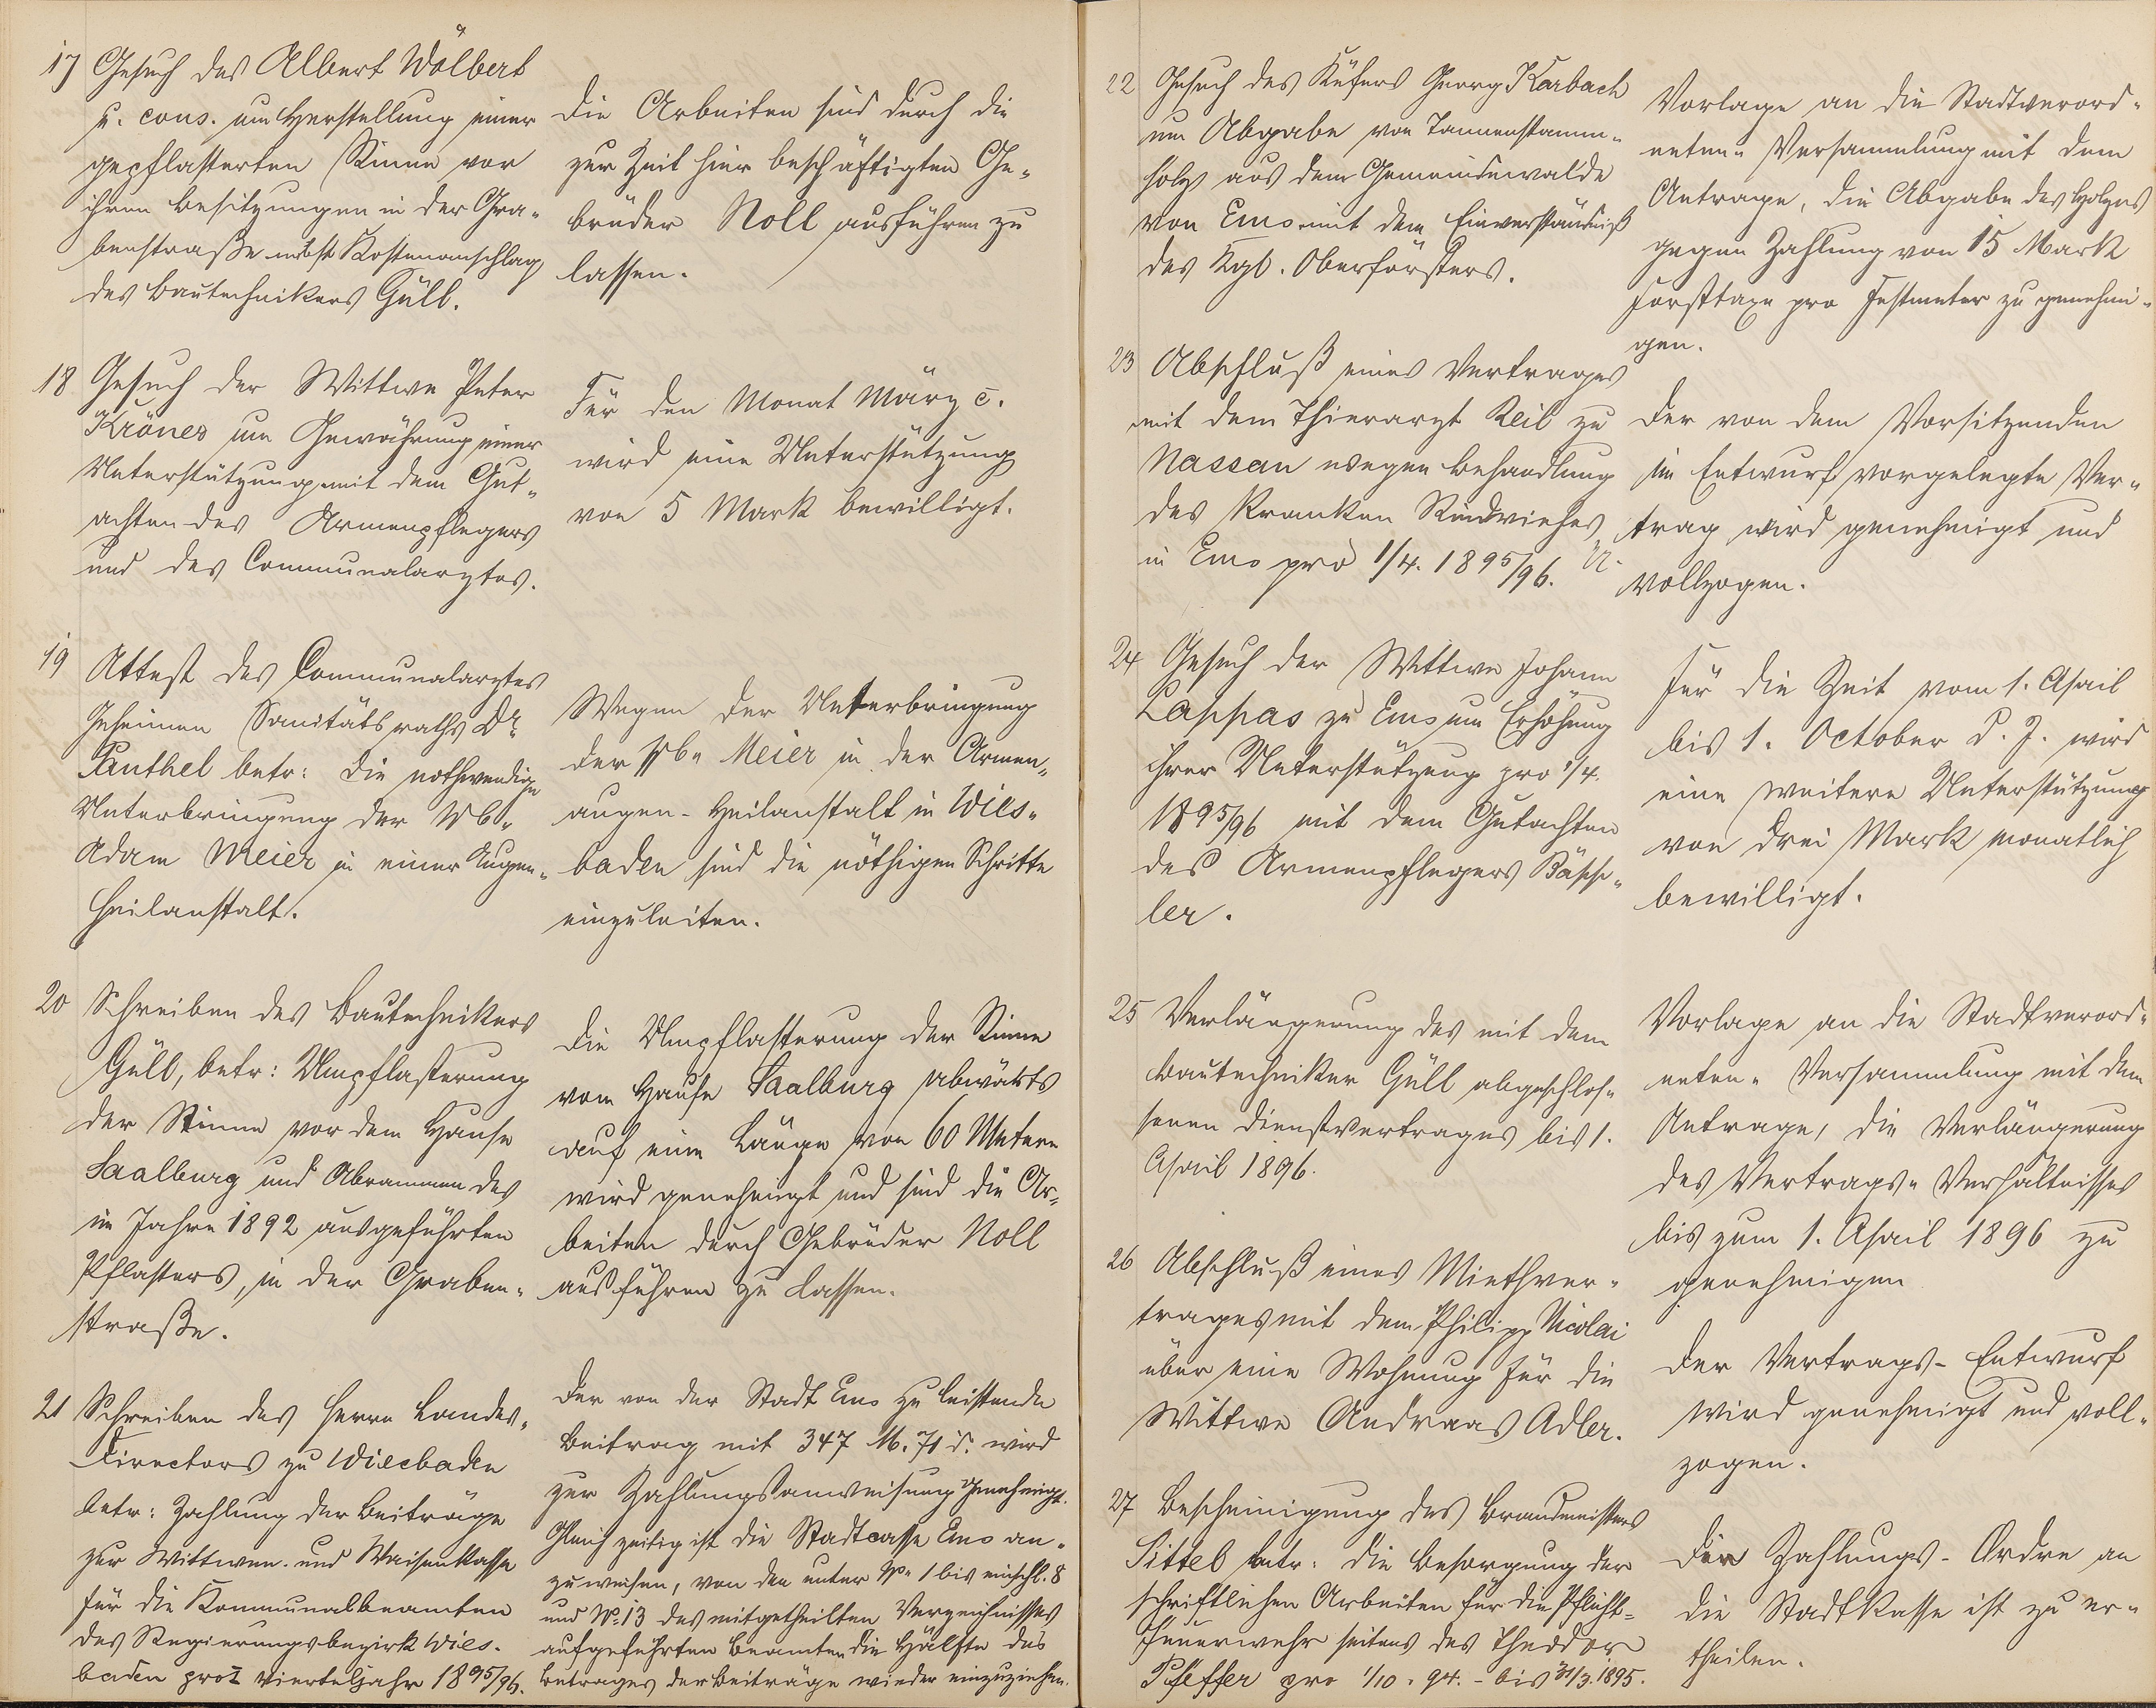 17 Gesuch des Albert Wölbert
u. cons. um Herstellung einer
gepflasterten Rinne vor
ihren Besitzungen in der Gra-
benstraße nebst Kostenanschlag
des Bautechnikers Güll.
Die Arbeiten sind durch die
zur Zeit hier beschäftigten Ge-
brüder Noll ausführen zu
lassen.
18 Gesuch der Wittwe Peter
Kröner um Gewährung einer
Unterstützung mit dem Gut-
achten des Armenpflegers
und des Communalarztes.
Für den Monat März c.
wird eine Unterstützung
von 5 Mark bewilligt.
19 Attest des Communalarztes
Geheimen Sanitätsraths Dr.
Panthel betr: die nothwendige
Unterbringung der Wb.
Adam Meier in einer Augen-
Heilanstalt.
Wegen der Unterbringung
der Wb. Meier in der Armen-
augen-Heilanstalt in Wies-
baden sind die nöthigen Schritte
einzuleiten.
20 Schreiben des Bautechnikers
Güll, betr: Umpflasterung
der Rinne vor dem Hause
Saalburg und Abrammen des
im Jahre 1892 ausgeführten
Pflasters, in der Graben-
straße.
Die Umpflasterung der Rinne
vom Hause Saalburg abwärts
auf eine Länge von 60 Metern
wird genehmigt und sind die Ar-
beiten durch Gebrüder Noll
ausführen zu lassen.
21 Schreiben des Herrn Landes-
Directors zu Wiesbaden
betr: Zahlung der Beiträge
zur Wittwen- und Waisenkasse
für die Kommunalbeamten
des Regierungsbezirk Wies-
baden pro I Vierteljahr 1895/96.
Der von der Stadt Ems zu leistende
Beitrag mit 347 M. 71 d. wird
zur Zahlungsanweisung genehmigt.
Gleichzeitig ist die Stadtcasse Ems an-
zuweisen, von den unter No. 1 bis einschl. 8
und No. 13 des mitgetheilten Verzeichnisses
aufgeführten Beamten die Hälfte des
Betrages der Beiträge wieder einzuziehen.
22 Gesuch des Küfers Georg Karbach
um Abgabe von Tannenstamm-
holz aus dem Gemeindewalde
von Ems mit dem Einverständniß
des Kgl. Oberförsters.
Vorlage an die Stadtverord-
neten-Versammlung mit dem
Antrage, die Abgabe des Holzes
gegen Zahlung von 15 Mark
Forsttaxe pro Festmeter zu genehmi-
gen.
23 Abschluß eines Vertrages
mit dem Thierarzt Reil zu
Nassau wegen Behandlung
des kranken Rindviehes
in Ems pro 1/4. 1895/96.
Der von dem Vorsitzenden
im Entwurf vorgelegte Ver-
trag wird genehmigt und
vollzogen.
24 Gesuch der Wittwe Johann
Lappas zu Ems um Erhöhung
ihrer Unterstützung pro 1/4.
1895/96 mit dem Gutachten
des Armenpflegers Bäppe-
ler.
Für die Zeit vom 1. April
bis 1. October d. J. wird
eine weitere Unterstützung
von drei Mark monatlich
bewilligt.
25 Verlängerung des mit dem
Bautechniker Güll abgeschlos-
senen Dienstvertrages bis 1.
April 1896.
Vorlage an die Stadtverord-
neten-Versammlung mit dem
Antrage, die Verlängerung
des Vertrags-Verhältnisses
bis zum 1. April 1896 zu
genehmigen
26 Abschluß eines Miethver-
trages mit dem Philipp Nicolai
über eine Wohnung für die
Wittwe Andreas Adler.
Der Vertrags-Entwurf
wird genehmigt und voll-
zogen.
27 Bescheinigung des Brandmeisters
Sittel betr: die Besorgung der
schriftlichen Arbeiten für die Pflicht-
Feuerwehr seitens des Theodor
Pfeffer pro 1/10. 94. - bis 31/3. 1895.
Die Zahlungs-Ordre an
die Stadtkasse ist zu er-
theilen.